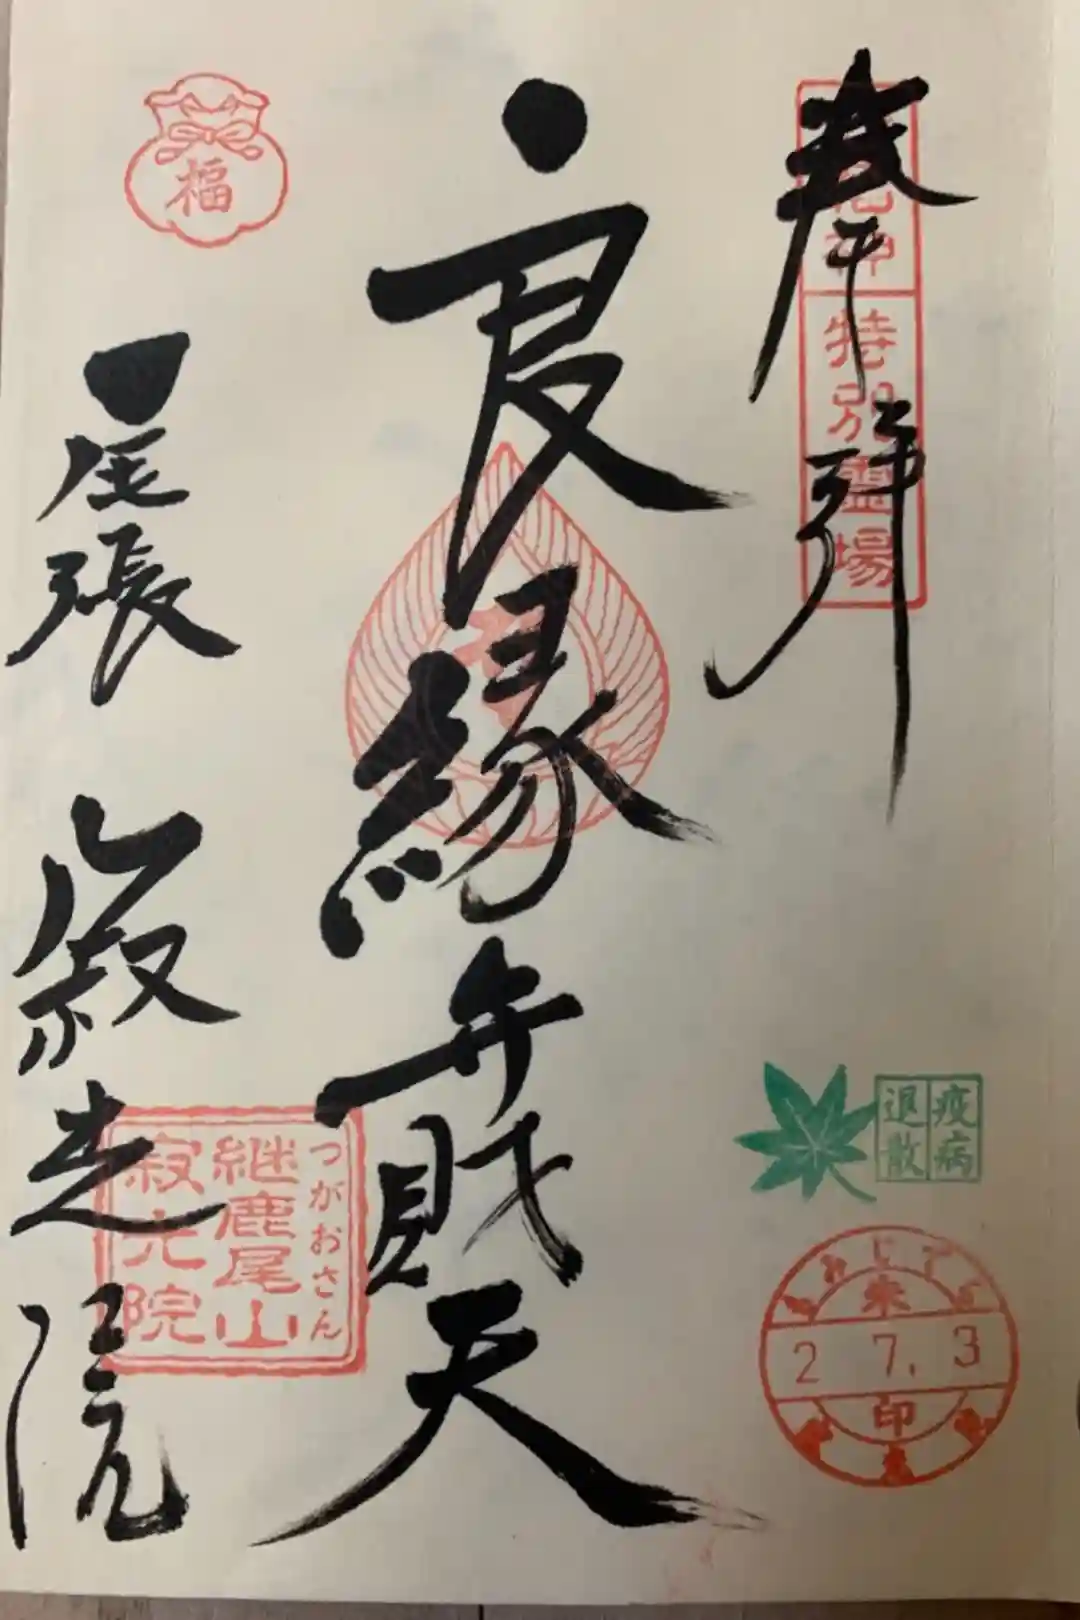 奉拝
特別霊場
良縁
弁財天
福
尾張
寂光院
つがおさん
継鹿尾山
寂光院
疫病
退散
朱
2 7. 3
印